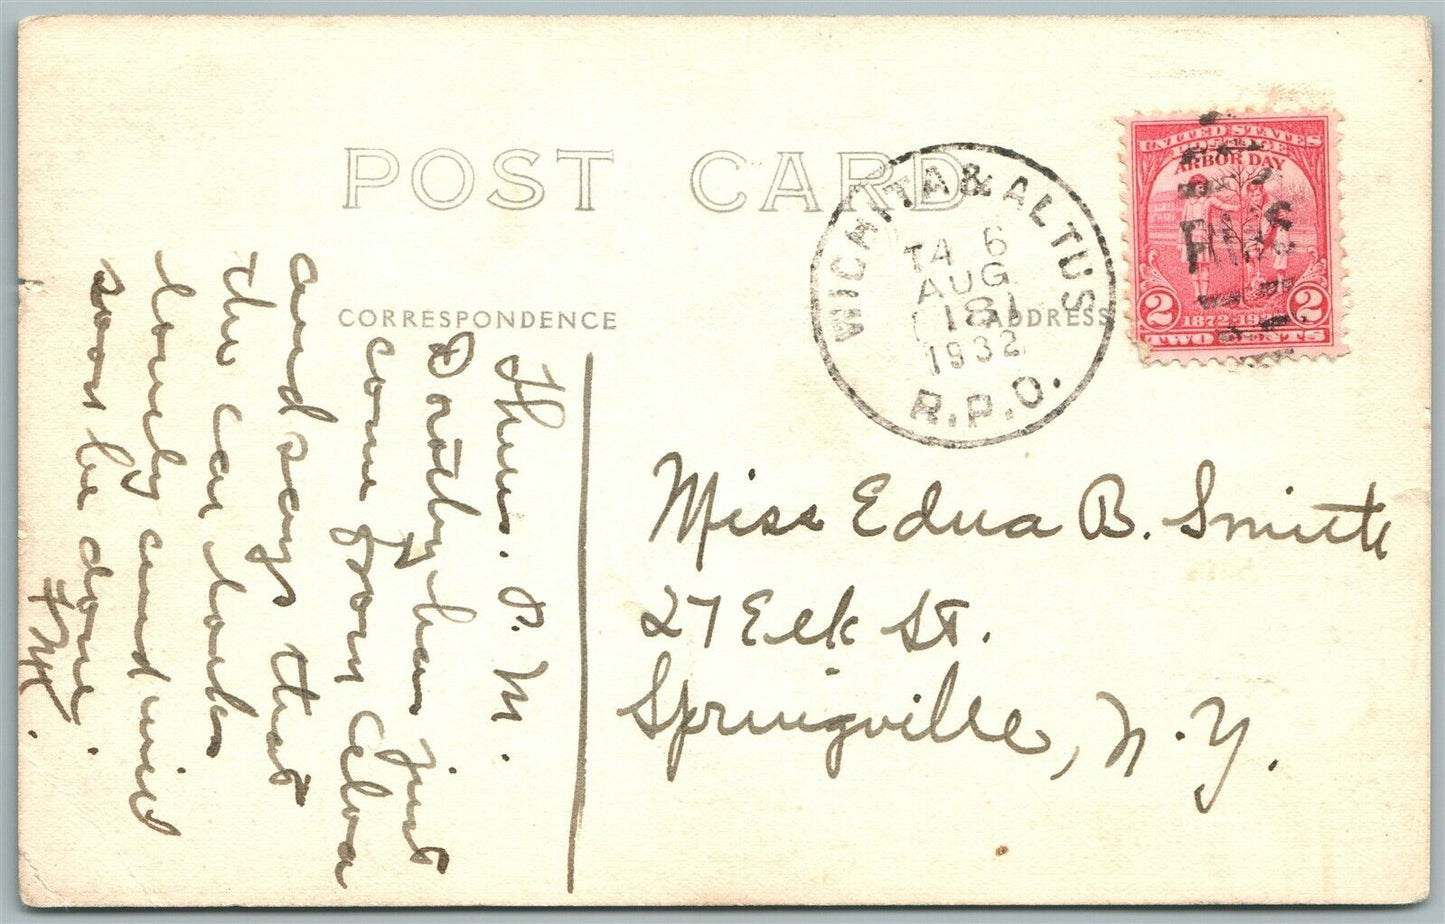 POST CARD
CORRESPONDENCE
ADDRESS
WICHITA & ALTUS
TA 6
AUG
18
1932
R.P.O.
UNITED STATES
ARBOR DAY
2 1872-19 2
TWO CENTS
RMS
Thurs. P. M.
Dorothy has just
come from Alva
and says that
the car looks
lovely and will
soon be done.
Miss Edna B. Smith
27 Elk St.
Springville, N.Y.